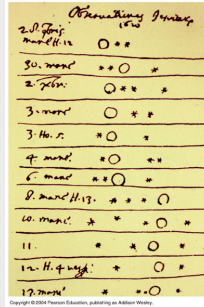 Observationes Jesuitae
1610
2. S. 8bris.
mane H. 12
30. mane
2. xbr:
3. mane
3. Ho. 5.
4. mane
6. mane
8. mane H. 13.
10. mane.
11.
12. H. 4 vesp:
17. mane
Copyright © 2004 Pearson Education, publishing as Addison Wesley.